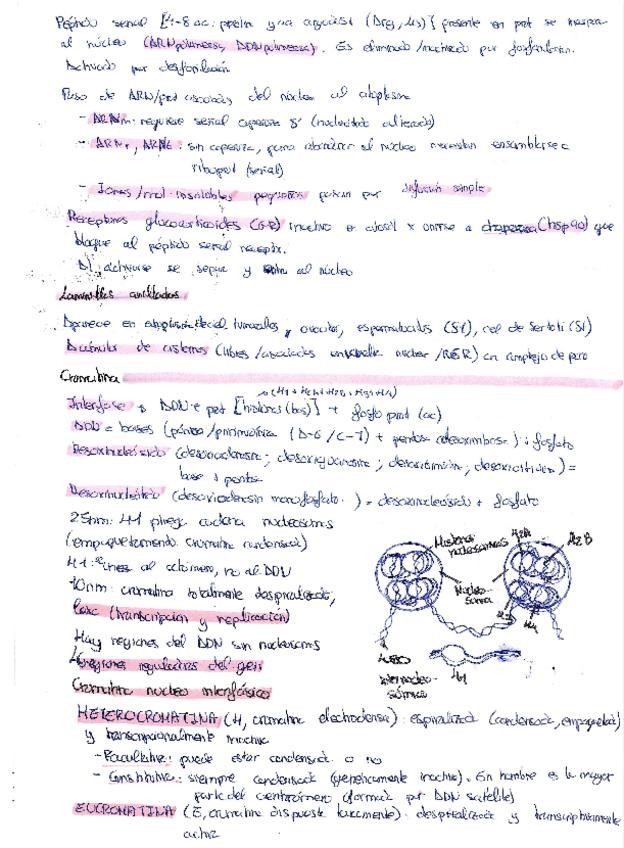 Péptido señal [4-8 aa: prolina y/o arginina (Arg, Lis)] presente en prot se transpor
al núcleo (ARNpolimerasa, DDNpolimerasa). Es eliminado/inactivado por fosforilación.
Activado por desfosforilación
Paso de ARN/prot asociadas del núcleo al citoplasma
- ARNm: requiere señal caperuza 5' (nucleótido alterado)
- ARNr, ARNt: sin caperuza, para abandonar el núcleo necesitan ensamblarse a
riboprot (señal)
- Iones/mol. insolubles pequeñas pasan por difusión simple
Receptores glucocorticoides (GR) inactivo en citosol x unirse a chaperona (hsp90) que
bloquea al péptido señal receptor.
Al activarse se separa y entra al núcleo
Laminillas anilladas
Aparece en citoplasma tumorales, ovocitos, espermátocitos (SI), cel de Sertoli (SI)
Acúmulo de cisternas (libres/asociadas envuelta nuclear/RER) con complejo de poro
Cromatina
Interfase → DDN + prot [histonas (bas)] + fosfo prot (ac)
DDN = bases (púrica/pirimidínica (A-G/C-T) + pentosa (desoxirribosa) + fosfato
Desoxinucleósido (desoxiadenosina; desoxiguanosina; desoxitimidina; desoxicitidina) =
base + pentosa
Desoxinucleótido (desoxiadenosin monofosfato.) = desoxinucleósido + fosfato
25nm: H1 pliega cadena nucleosomas
(empaquetamiento cromatina condensada)
H1: se une al octámero, no al DDN
10nm: cromatina totalmente despiralizada,
laxa (transcripción y replicación)
Hay regiones del DDN sin nucleosomas
regiones reguladoras del gen
Cromatina núcleo interfásico
Histonas nucleosómicas
H2A
H2B
Nucleosoma
H3
H4
DDN
internucleosómico
H1
HETEROCROMATINA (H, cromatina electrodensa): espiralizada (condensada, empaquetada)
y transcripcionalmente inactiva
- Facultativa: puede estar condensada o no
- Constitutiva: siempre condensada (genéticamente inactiva). En hombre es la mayor
parte del centrómero (formada por DDN satélite)
EUCROMATINA (E, cromatina dispuesta laxamente): despiralizada y transcripcionalmente
activa